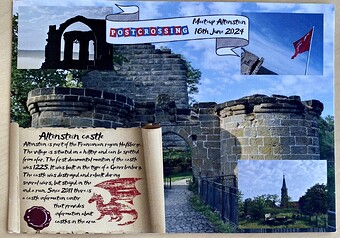 POSTCROSSING
Meetup Altenstein
16th June 2024
Altenstein castle
Altenstein is part of the Franconian region Haßberge.
The village is situated on a hilltop and can be spotted
from afar. The first documental mention of the castle
was 1225. It was built in the type of a
The castle was destroyed and rebuilt during
several wars, but stayed in the
end a ruin. Since 2011 there is
a castle information center
that provides
information about
castles in the area